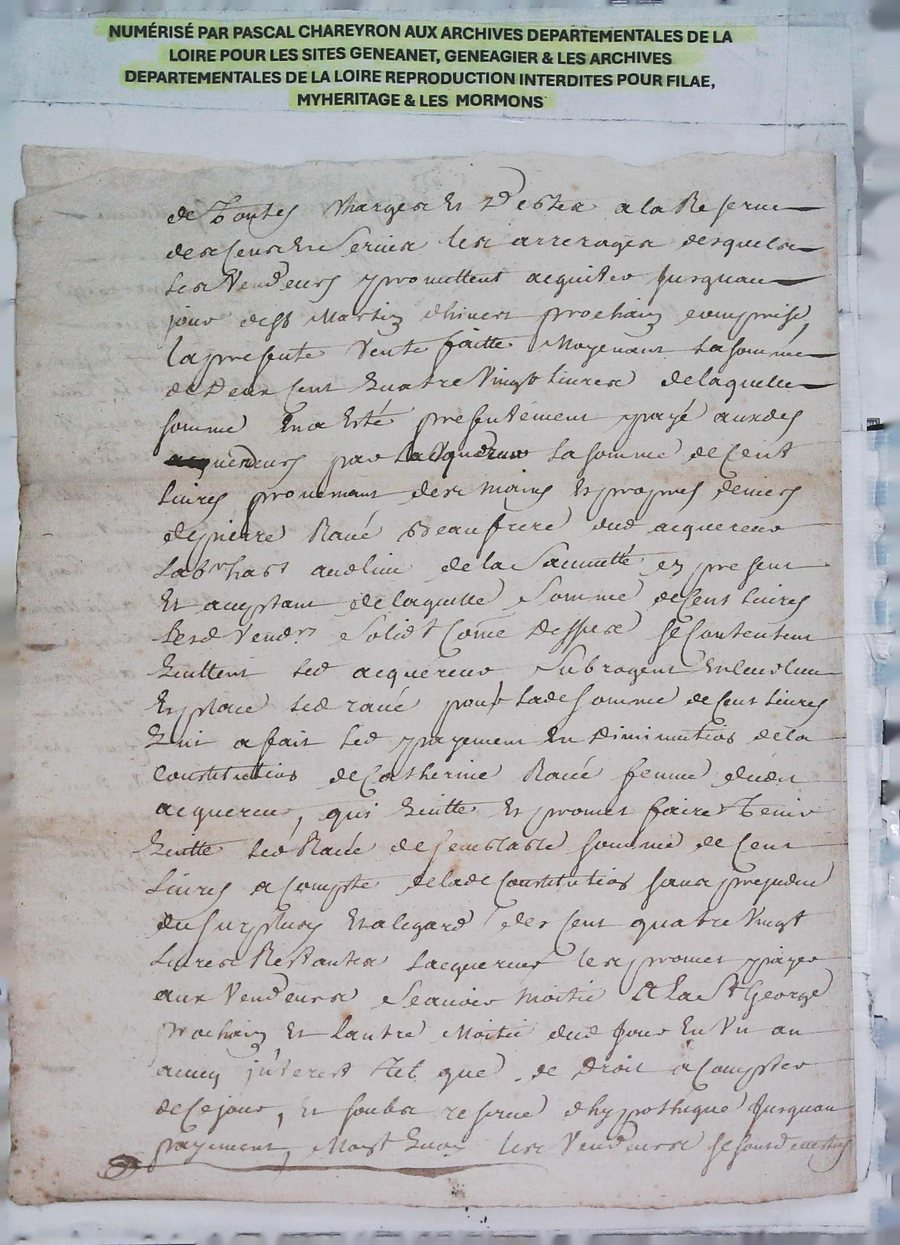 NUMÉRISÉ PAR PASCAL CHAREYRON AUX ARCHIVES DEPARTEMENTALES DE LA
LOIRE POUR LES SITES GENEANET, GENEAGIER & LES ARCHIVES
DEPARTEMENTALES DE LA LOIRE REPRODUCTION INTERDITES POUR FILAE,
MYHERITAGE & LES MORMONS
de Toutes Charges Et Debtes a la Reserve
des Cens En Servis les arrerages desquels
Les Vendeurs promettent acquiter Jusquau
jour de St Martin dhivert prochain compris,
la presente Vente faitte Moyenant La somme
de Deux Cent Quatre Vingt Livres de laquelle
somme En a Esté presentement payé auxdes
par Lacquereur La somme de Cent
Livres provenant des mains Et propres deniers
de pierre Raué Beaufrere dud acquereur
Labr au lieu de la en present
Et aceptant de laquelle Somme de Cent Livres
Lesd Vendrs Solidt Come Dessus se Contentent
Quittent Led acquereur, Subrogent En leur lieu
Et place Led raué pour Lade somme de Cent Livres
Qui a fait Led payement En Diminution de la
Constitution de Catherine Raué femme dudit
acquereur, qui Quitte Et promet faire Tenir
Quitte Led Raué de semblable somme de Cent
Livres a Compte de lade Constitution sans prejudice
du surplus Et a legard des Cent quatre Vingt
Livres Restantes Lacquereur les promet payer
aux Vendeurs Scavoir Moitié A La St George
prochain Et Lautre Moitié dud Jour En Un an
avecq interest Tel que de Droit a Compter
de Ce jour, Et soubs reserve dhypotheque Jusquau
payement, Moyt Quoy les Vendeurs se sont